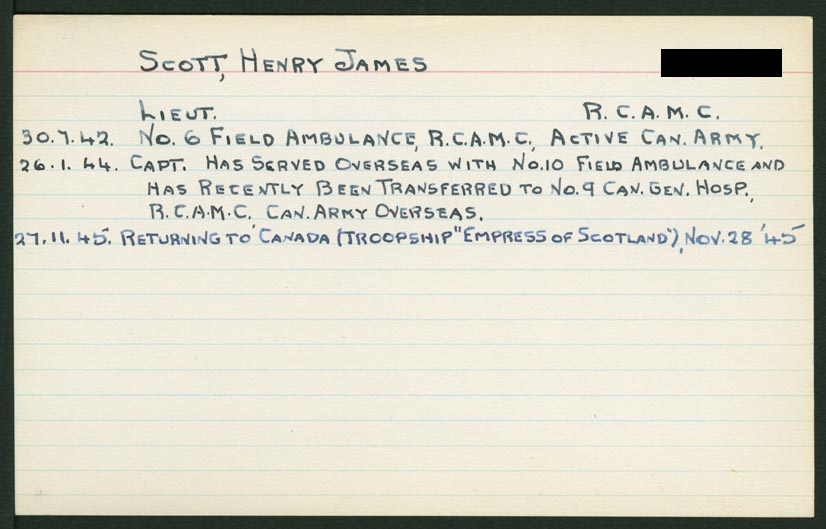 SCOTT, HENRY JAMES
LIEUT. R.C.A.M.C.
30.7.42. NO. 6 FIELD AMBULANCE, R.C.A.M.C., ACTIVE CAN. ARMY.
26.1.44. CAPT. HAS SERVED OVERSEAS WITH NO.10 FIELD AMBULANCE AND
HAS RECENTLY BEEN TRANSFERRED TO NO.9 CAN. GEN. HOSP.,
R.C.A.M.C. CAN. ARMY OVERSEAS.
27.11.45. RETURNING TO CANADA (TROOPSHIP "EMPRESS OF SCOTLAND"), NOV. 28 '45